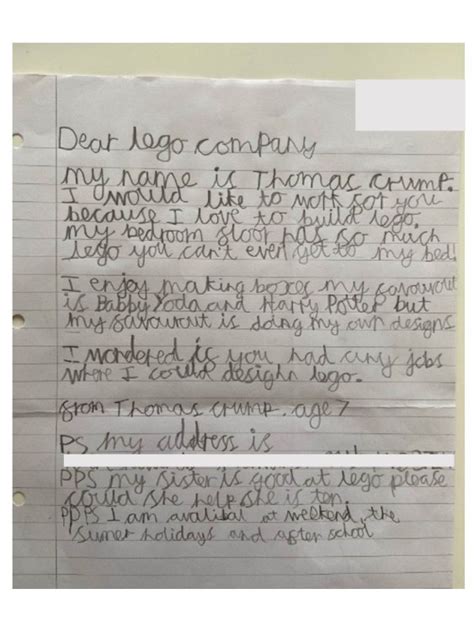 Dear lego company
My name is Thomas Crump.
I would like to work for you
because I love to build lego.
my bedroom floor has so much
lego you can't even get to my bed!
I enjoy making boxes my favourout
is Babby Yoda and Harry Potter but
my favourout is doing my own designs
I wondered if you had any jobs
where I could desighn lego.
from Thomas Crump. age 7
PS my address is
PPS my sister is good at lego please
could she help she is ten.
PPPS I am avalibal at weekend, the
sumer holidays and after school